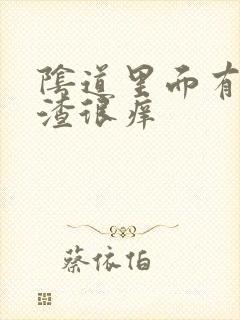 陰道里而有
渣很痒
蔡依怕